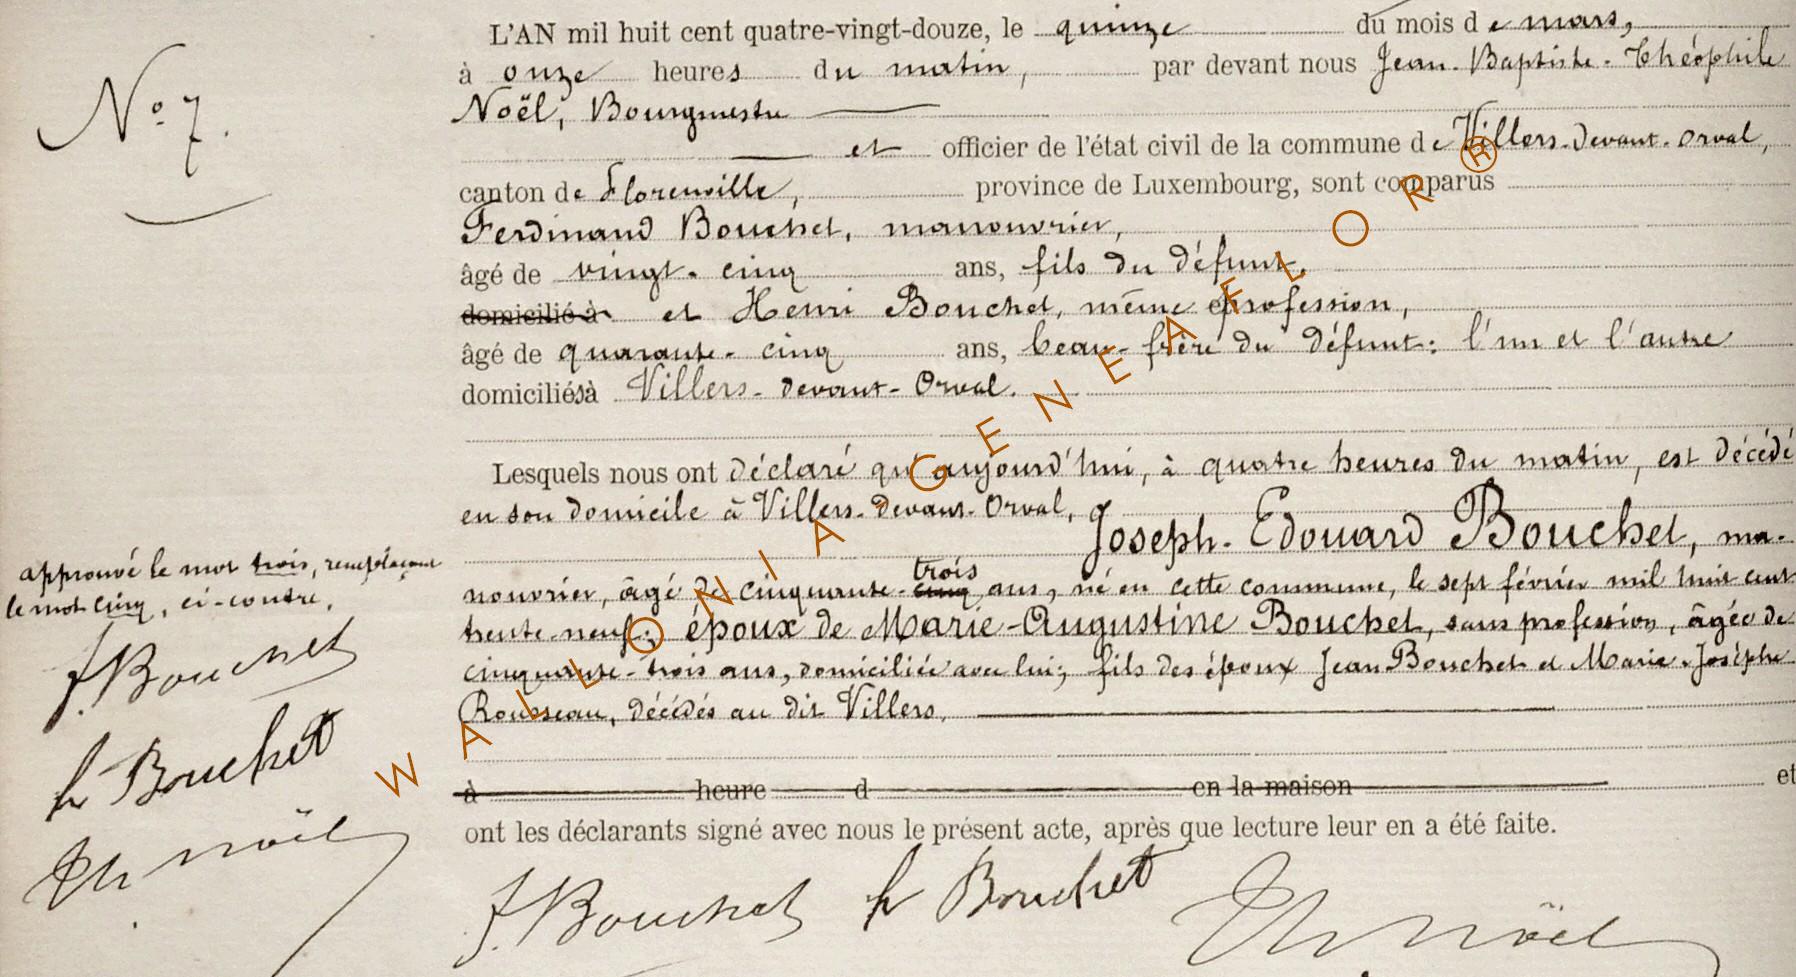 No 7.
L'AN mil huit cent quatre-vingt-douze, le quinze du mois de mars,
à onze heures du matin, par devant nous Jean-Baptiste-Théophile
Noël, Bourgmestre
et officier de l'état civil de la commune de Villers-devant-Orval,
canton de Florenville, province de Luxembourg, sont comparus
Ferdinand Bouchet, manouvrier,
âgé de vingt-cinq ans, fils du défunt,
domicilié à et Henri Bouchet, même profession,
âgé de quarante-cinq ans, beau-frère du défunt: l'un et l'autre
domiciliés à Villers-devant-Orval.
Lesquels nous ont déclaré qu'aujourd'hui, à quatre heures du matin, est décédé
en son domicile à Villers-devant-Orval,
Joseph-Edouard Bouchet, ma-
trois
nouvrier, âgé de cinquante-cinq ans, né en cette commune, le sept février mil huit cent
trente-neuf; époux de Marie-Augustine Bouchet, sans profession, âgée de
cinquante-trois ans, domiciliée avec lui; fils des époux Jean Bouchet et Marie-Josèphe
Rousseau, décédés au dit Villers.
à heure d en la maison et
ont les déclarants signé avec nous le présent acte, après que lecture leur en a été faite.
f. Bouchet h Bouchet Th Noël
approuvé le mot trois, remplaçant
le mot cinq, ci-contre.
f. Bouchet
h Bouchet
Th Noël
WALLONIA-GENEAFLOR®